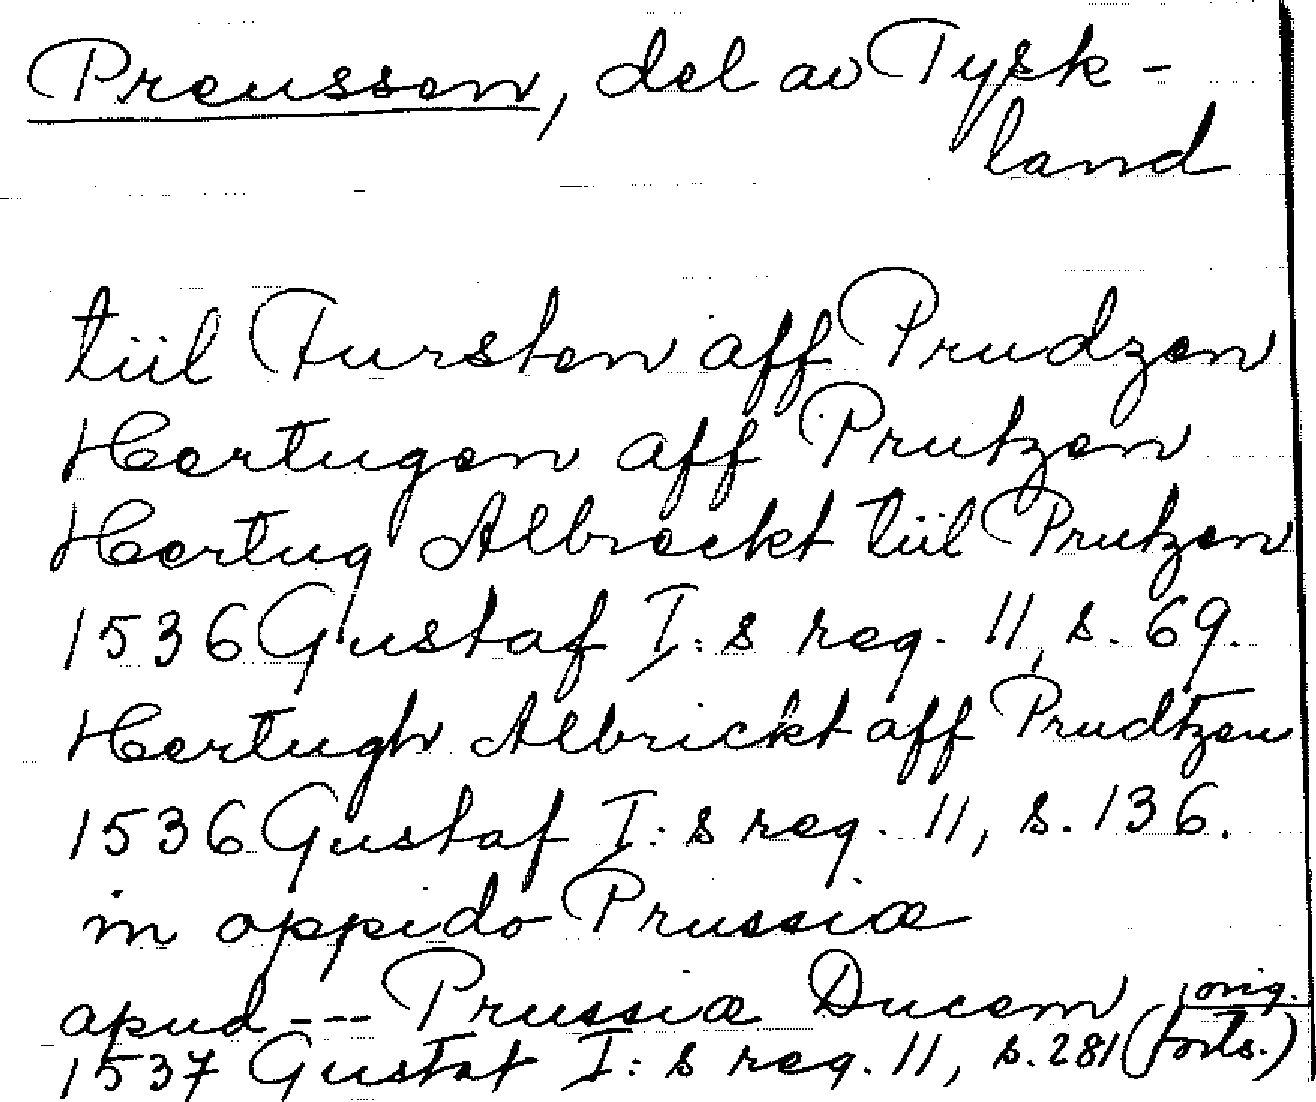 Preussen, del av Tysk-
land
tiil Fursten aff Prudzen
Hertugen aff Prutzen
Hertug Albreckt tiil Prutzen
1536 Gustaf I:s reg. 11, s. 69.
Hertugh Albrickt aff Prudtzen
1536 Gustaf I:s reg. 11, s. 136.
in oppido Prussiæ
apud --- Prussiæ Ducem, orig.
1537 Gustaf I:s reg. 11, s. 281 (forts.)